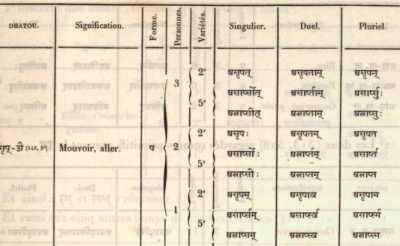 DHATOU. Signification. Forme. Personnes. Variétés. Singulier. Duel. Pluriel.
3 2' असृपत् असृपताम् असृपन्
असार्प्सीत् असार्प्ताम् असार्प्सुः
5' अस्राप्सीत् अस्राप्ताम् अस्राप्सुः
Mouvoir, aller. ष 2 2' असृपः असृपतम् असृपत
असार्प्सीः असार्प्तम् असार्प्त
5' अस्राप्सीः अस्राप्तम् अस्राप्त
1 2' असृपम् असृपाव असृपाम
असार्प्सम् असार्प्स्व असार्प्स्म
5' अस्राप्सम् अस्राप्स्व अस्राप्स्म